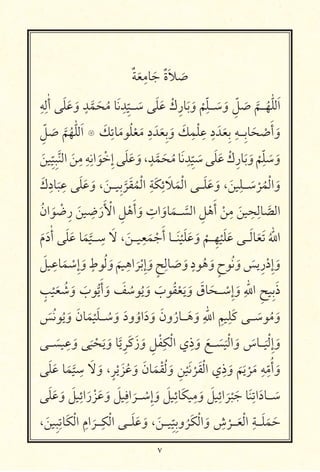 صَلَاةٌ جَامِعَةٌ
اَللّٰهُمَّ صَلِّ وَسَلِّمْ وَبَارِكْ عَلَى سَيِّدِنَا مُحَمَّدٍ وَعَلَى أٰلِهِ
وَأَصْحَابِهِ بِعَدَدِ عِلْمِكَ وَبِعَدَدِ مَعْلُومَاتِكَ ۞ اَللّٰهُمَّ صَلِّ
وَسَلِّمْ وَبَارِكْ عَلَى سَيِّدِنَا مُحَمَّدٍ، وَعَلَى إِخْوَانِهِ مِنَ النَّبِيِّينَ
وَالْمُرْسَلِينَ، وَعَلَى الْمَلَائِكَةِ الْمُقَرَّبِينَ، وَعَلَى عِبَادِكَ
الصَّالِحِينَ مِنْ أَهْلِ السَّمَاوَاتِ وَأَهْلِ الْأَرَضِينَ رِضْوَانُ
اللهِ تَعَالَى عَلَيْهِمْ وَعَلَيْنَا أَجْمَعِينَ، لَا سِيَّمَا عَلَى أٰدَمَ
وَإِدْرِيسَ وَنُوحٍ وَهُودٍ وَصَالِحٍ وَإِبْرَاهِيمَ وَلُوطٍ وَإِسْمَاعِيلَ
ذَبِيحِ اللهِ وَإِسْحَاقَ وَيَعْقُوبَ وَيُوسُفَ وَأَيُّوبَ وَشُعَيْبٍ
وَمُوسَى كَلِيمِ اللهِ وَهَارُونَ وَدَاوُودَ وَسُلَيْمَانَ وَيُونُسَ
وَإِلْيَاسَ وَالْيَسَعَ وَذِي الْكِفْلِ وَزَكَرِيَّا وَيَحْيَى وَعِيسَى
وَأُمِّهِ مَرْيَمَ وَذِي الْقَرْنَيْنِ وَلُقْمَانَ وَعُزَيْرٍ، وَلَا سِيَّمَا عَلَى
سَادَاتِنَا جَبْرَائِيلَ وَمِيكَائِيلَ وَإِسْرَافِيلَ وَعَزْرَائِيلَ وَعَلَى
حَمَلَةِ الْعَرْشِ وَالْكَرُوبِيِّينَ، وَعَلَى الْكِرَامِ الْكَاتِبِينَ،
٧